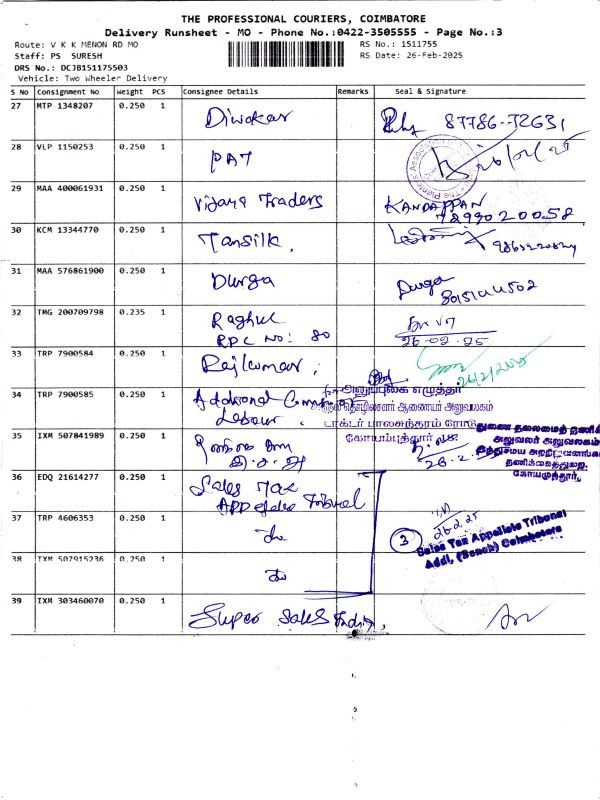 THE PROFESSIONAL COURIERS, COIMBATORE
Delivery Runsheet - MO - Phone No.:0422-3505555 - Page No.:3
Route: V K K MENON RD MO
RS No.: 1511755
Staff: PS SURESH
RS Date: 26-Feb-2025
DRS No.: DCJB151175503
Vehicle: Two Wheeler Delivery
S No Consignment No Weight PCS Consignee Details Remarks Seal & Signature
27 MTP 1348207 0.250 1 Diwakar 87786-72631
28 VLP 1150253 0.250 1 PAT
29 MAA 400061931 0.250 1 Vijaya Traders KANDAPPAN
7899020058
30 KCM 13344770 0.250 1 Tansilk.
31 MAA 576861900 0.250 1 Durga Durga
32 TMG 200709798 0.235 1 Raghul
RPC NO: 80 26-02-25
33 TRP 7900584 0.250 1 Rajkumar. 26/2/2025
34 TRP 7900585 0.250 1 Additional
Labour.
அலுவலகம்
டாக்டர் பாலசுந்தரம் ரோடு
கோயம்புத்தூர்
35 IXM 507841989 0.250 1
துணை தலைமைத் தணிக்
அலுவலர் அலுவலகம்
இந்துசமய
தணிக்கைத்துறை,
கோயமுத்தூர்,
36 EDQ 21614277 0.250 1 Sales Tax
Appellate Tribunal
37 TRP 4606353 0.250 1 do 26.2.25
3 Sales Tax Appellate Tribunal
Addl, (Bench) Coimbatore
38 IXM 507915236 0.250 1 do
39 IXM 303460070 0.250 1 Super Sales India,